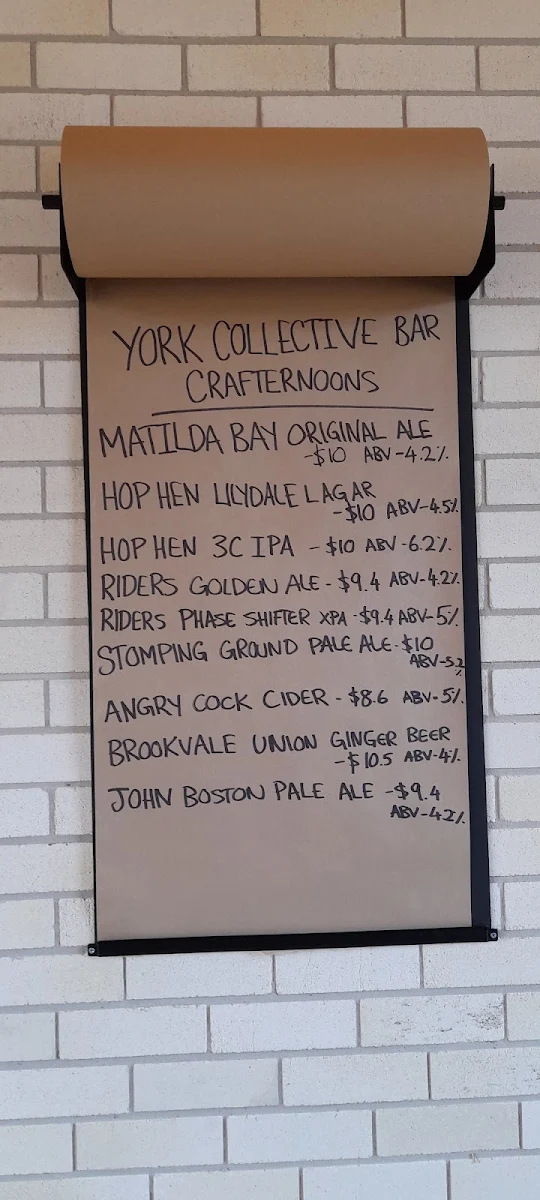 YORK COLLECTIVE BAR
CRAFTERNOONS
MATILDA BAY ORIGINAL ALE
-$10 ABV-4.2%.
HOP HEN LILYDALE LAGAR
-$10 ABV-4.5%.
HOP HEN 3C IPA -$10 ABV-6.2%.
RIDERS GOLDEN ALE-$9.4 ABV-4.2%.
RIDERS PHASE SHIFTER XPA-$9.4 ABV-5%.
STOMPING GROUND PALE ALE-$10
ABV-5.2
%
ANGRY COCK CIDER-$8.6 ABV-5%.
BROOKVALE UNION GINGER BEER
-$10.5 ABV-4%.
JOHN BOSTON PALE ALE -$9.4
ABV-4.2%.